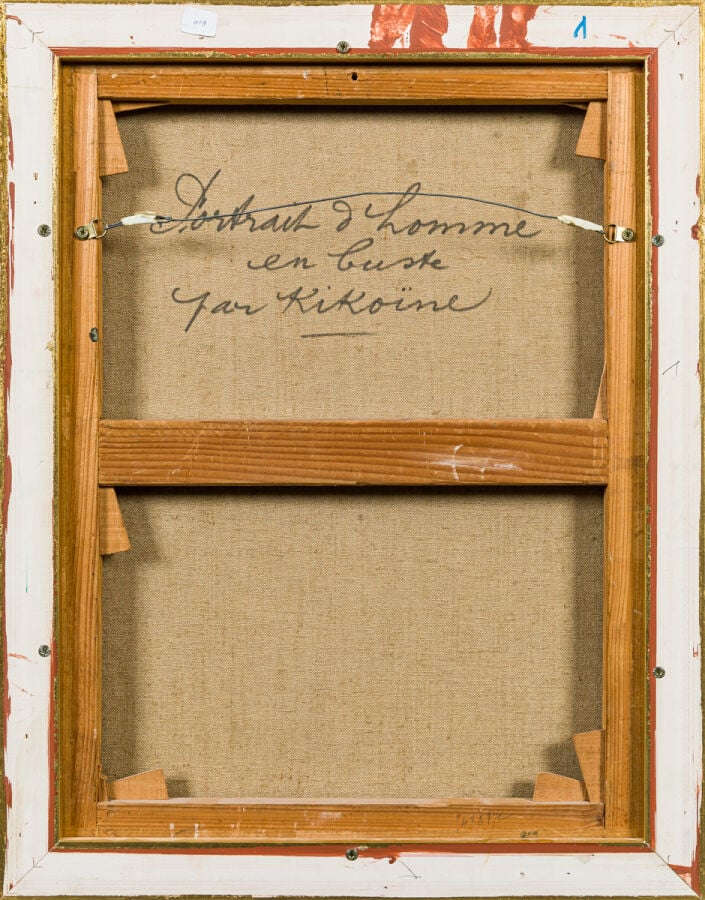 019
1
Portrait d'homme
en buste
par Kikoïne